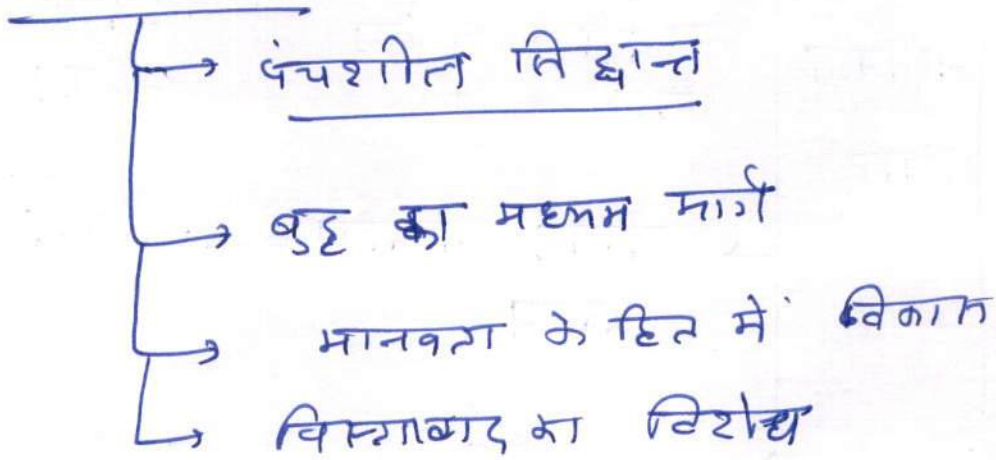 पंचशील सिद्धान्त
बुद्ध का मध्यम मार्ग
मानवता के हित में विकास
विस्तारवाद का विरोध